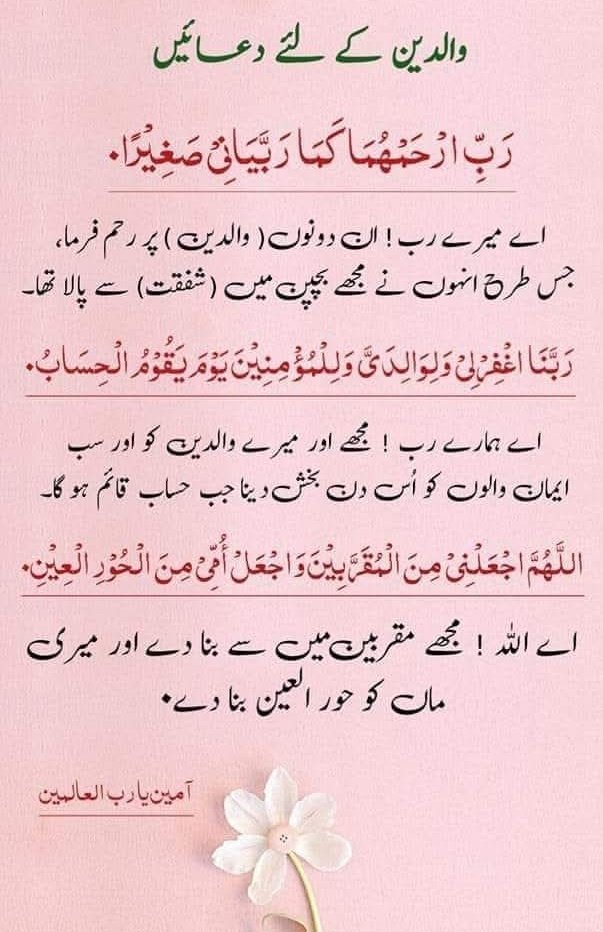 والدین کے لئے دعائیں
رَبِّ ارْحَمْهُمَا كَمَا رَبَّيَانِيْ صَغِيْرًا۰
اے میرے رب! ان دونوں (والدین) پر رحم فرما،
جس طرح انہوں نے مجھے بچپن میں (شفقت) سے پالا تھا۔
رَبَّنَا اغْفِرْلِيْ وَلِوَالِدَيَّ وَلِلْمُؤْمِنِيْنَ يَوْمَ يَقُوْمُ الْحِسَابُ۰
اے ہمارے رب! مجھے اور میرے والدین کو اور سب
ایمان والوں کو اُس دن بخش دینا جب حساب قائم ہو گا۔
اللَّهُمَّ اجْعَلْنِيْ مِنَ الْمُقَرَّبِيْنَ وَاجْعَلْ أُمِّيْ مِنَ الْحُوْرِ الْعِيْنِ۰
اے اللہ! مجھے مقربین میں سے بنا دے اور میری
ماں کو حور العین بنا دے۰
آمین یا رب العالمین